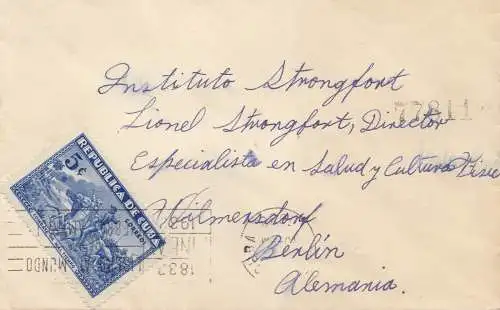 Instituto Strongfort
77811
Lionel Strongfort, Director
Especialista en Salud y Cultura
Wilmersdorf
Berlín
Alemania.
5¢
REPUBLICA DE CUBA
CORREOS
MUNDO